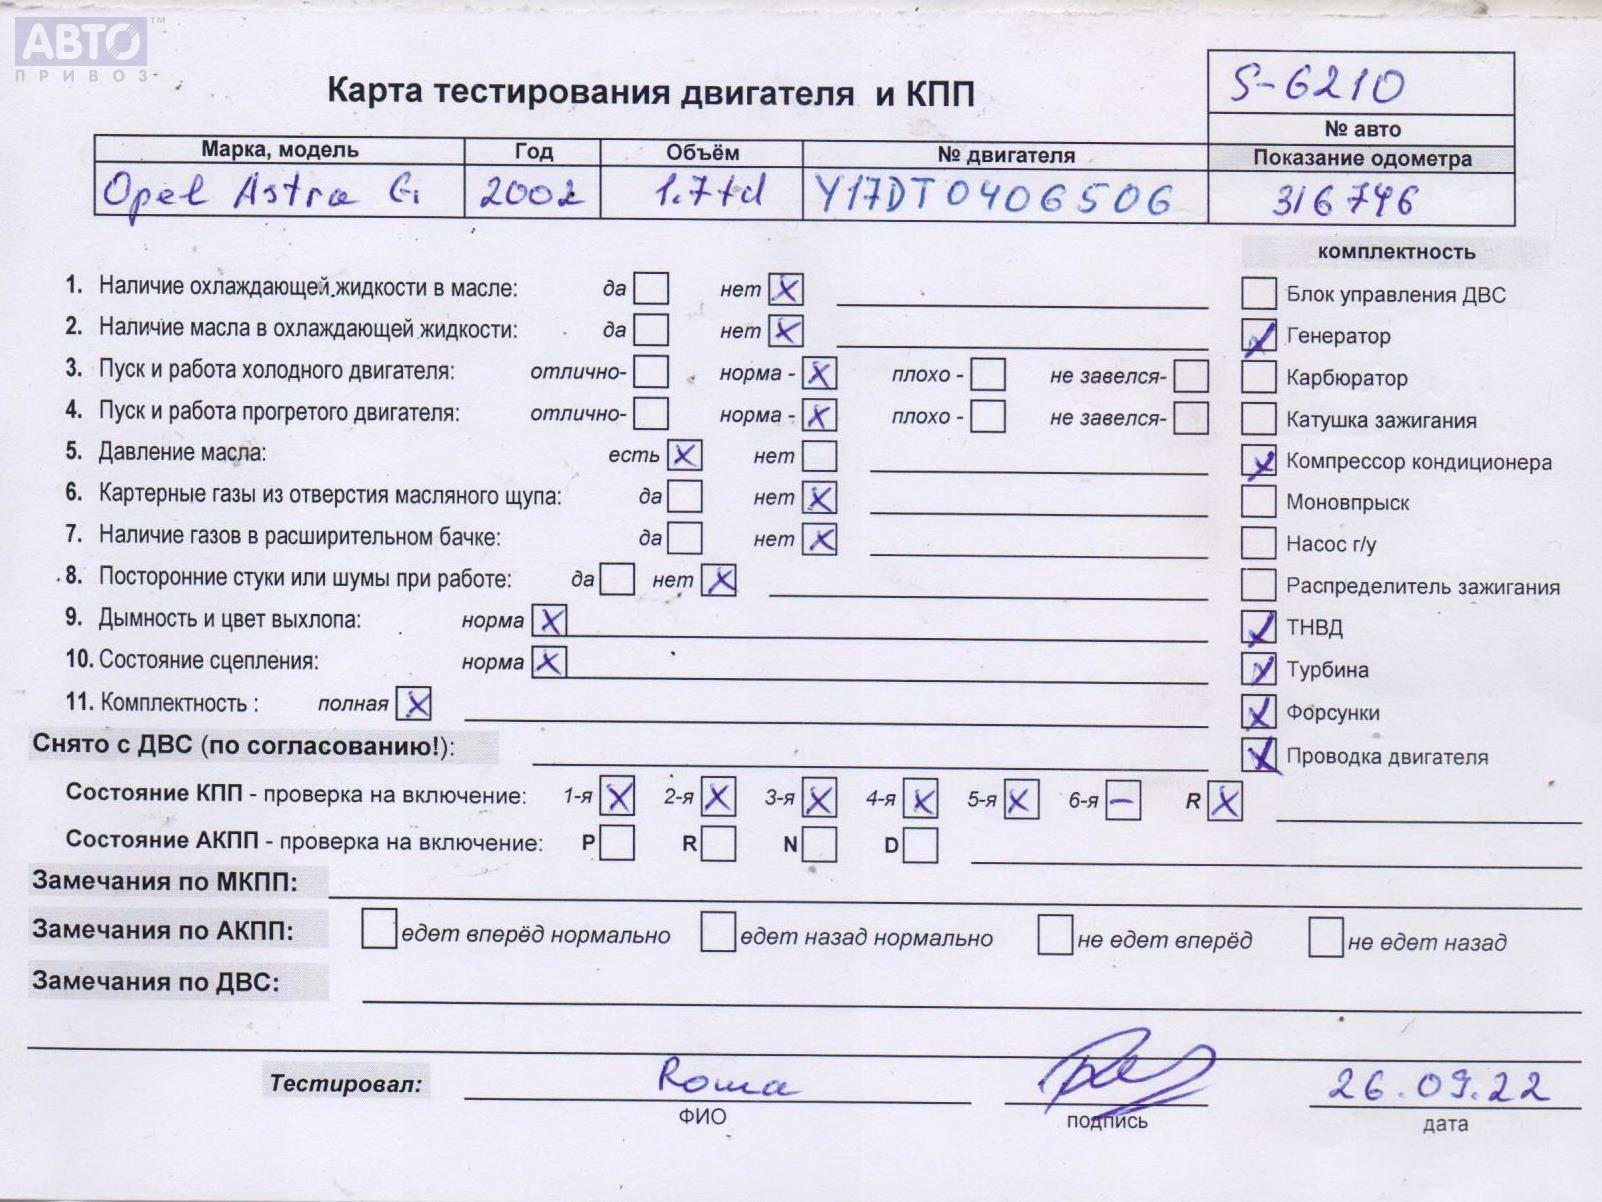 АВТО™
ПРИВОЗ
Карта тестирования двигателя и КПП
S-6210
№ авто
Марка, модель Год Объём № двигателя Показание одометра
Opel Astra G 2002 1.7td Y17DT0406506 316746
комплектность
1. Наличие охлаждающей жидкости в масле: да нет X
Блок управления ДВС
2. Наличие масла в охлаждающей жидкости: да нет X
Генератор
3. Пуск и работа холодного двигателя: отлично- норма - X плохо - не завелся-
Карбюратор
4. Пуск и работа прогретого двигателя: отлично- норма - X плохо - не завелся-
Катушка зажигания
5. Давление масла: есть X нет
Компрессор кондиционера
6. Картерные газы из отверстия масляного щупа: да нет X
Моновпрыск
7. Наличие газов в расширительном бачке: да нет X
Насос г/у
8. Посторонние стуки или шумы при работе: да нет X
Распределитель зажигания
9. Дымность и цвет выхлопа: норма X
ТНВД
10. Состояние сцепления: норма X
Турбина
11. Комплектность : полная X
Форсунки
Снято с ДВС (по согласованию!):
Проводка двигателя
Состояние КПП - проверка на включение: 1-я X 2-я X 3-я X 4-я X 5-я X 6-я – R X
Состояние АКПП - проверка на включение: P R N D
Замечания по МКПП:
Замечания по АКПП: едет вперёд нормально едет назад нормально не едет вперёд не едет назад
Замечания по ДВС:
Тестировал: Roma 26.09.22
ФИО подпись дата